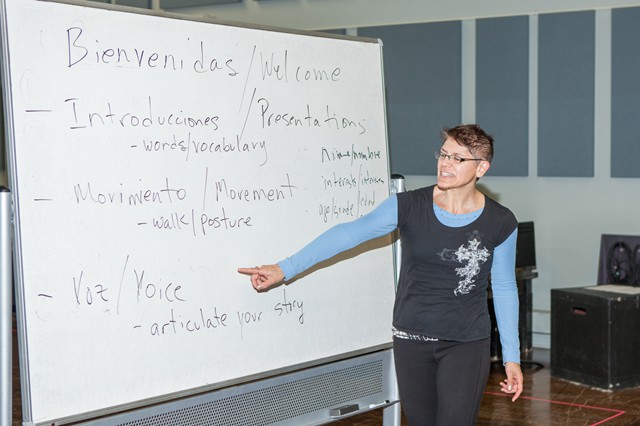 Bienvenidas / Welcome
- Introducciones / Presentations
- words/vocabulary
name/nombre
- Movimiento / Movement
interests/
- walk/posture
age/grade/edad
- Voz / Voice
- articulate your story